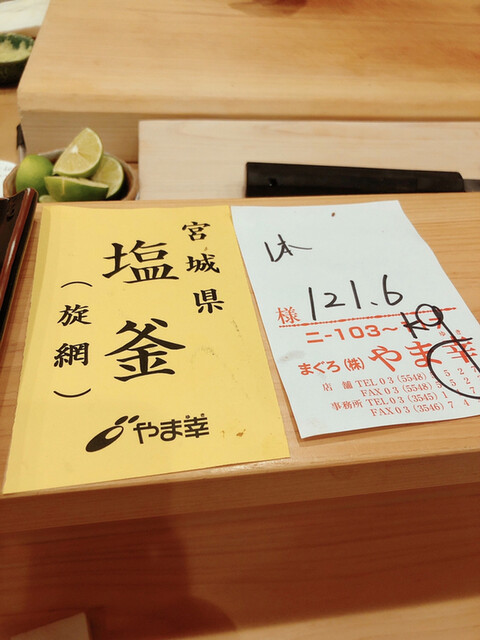 宮城県
塩釜
(旋網)
やま幸
様 121.6
ニ-103〜 KG
まぐろ(株)やま幸
店舗 TEL 03(5548)
FAX 03(5548)
事務所 TEL 03(3545)
FAX 03(3546)